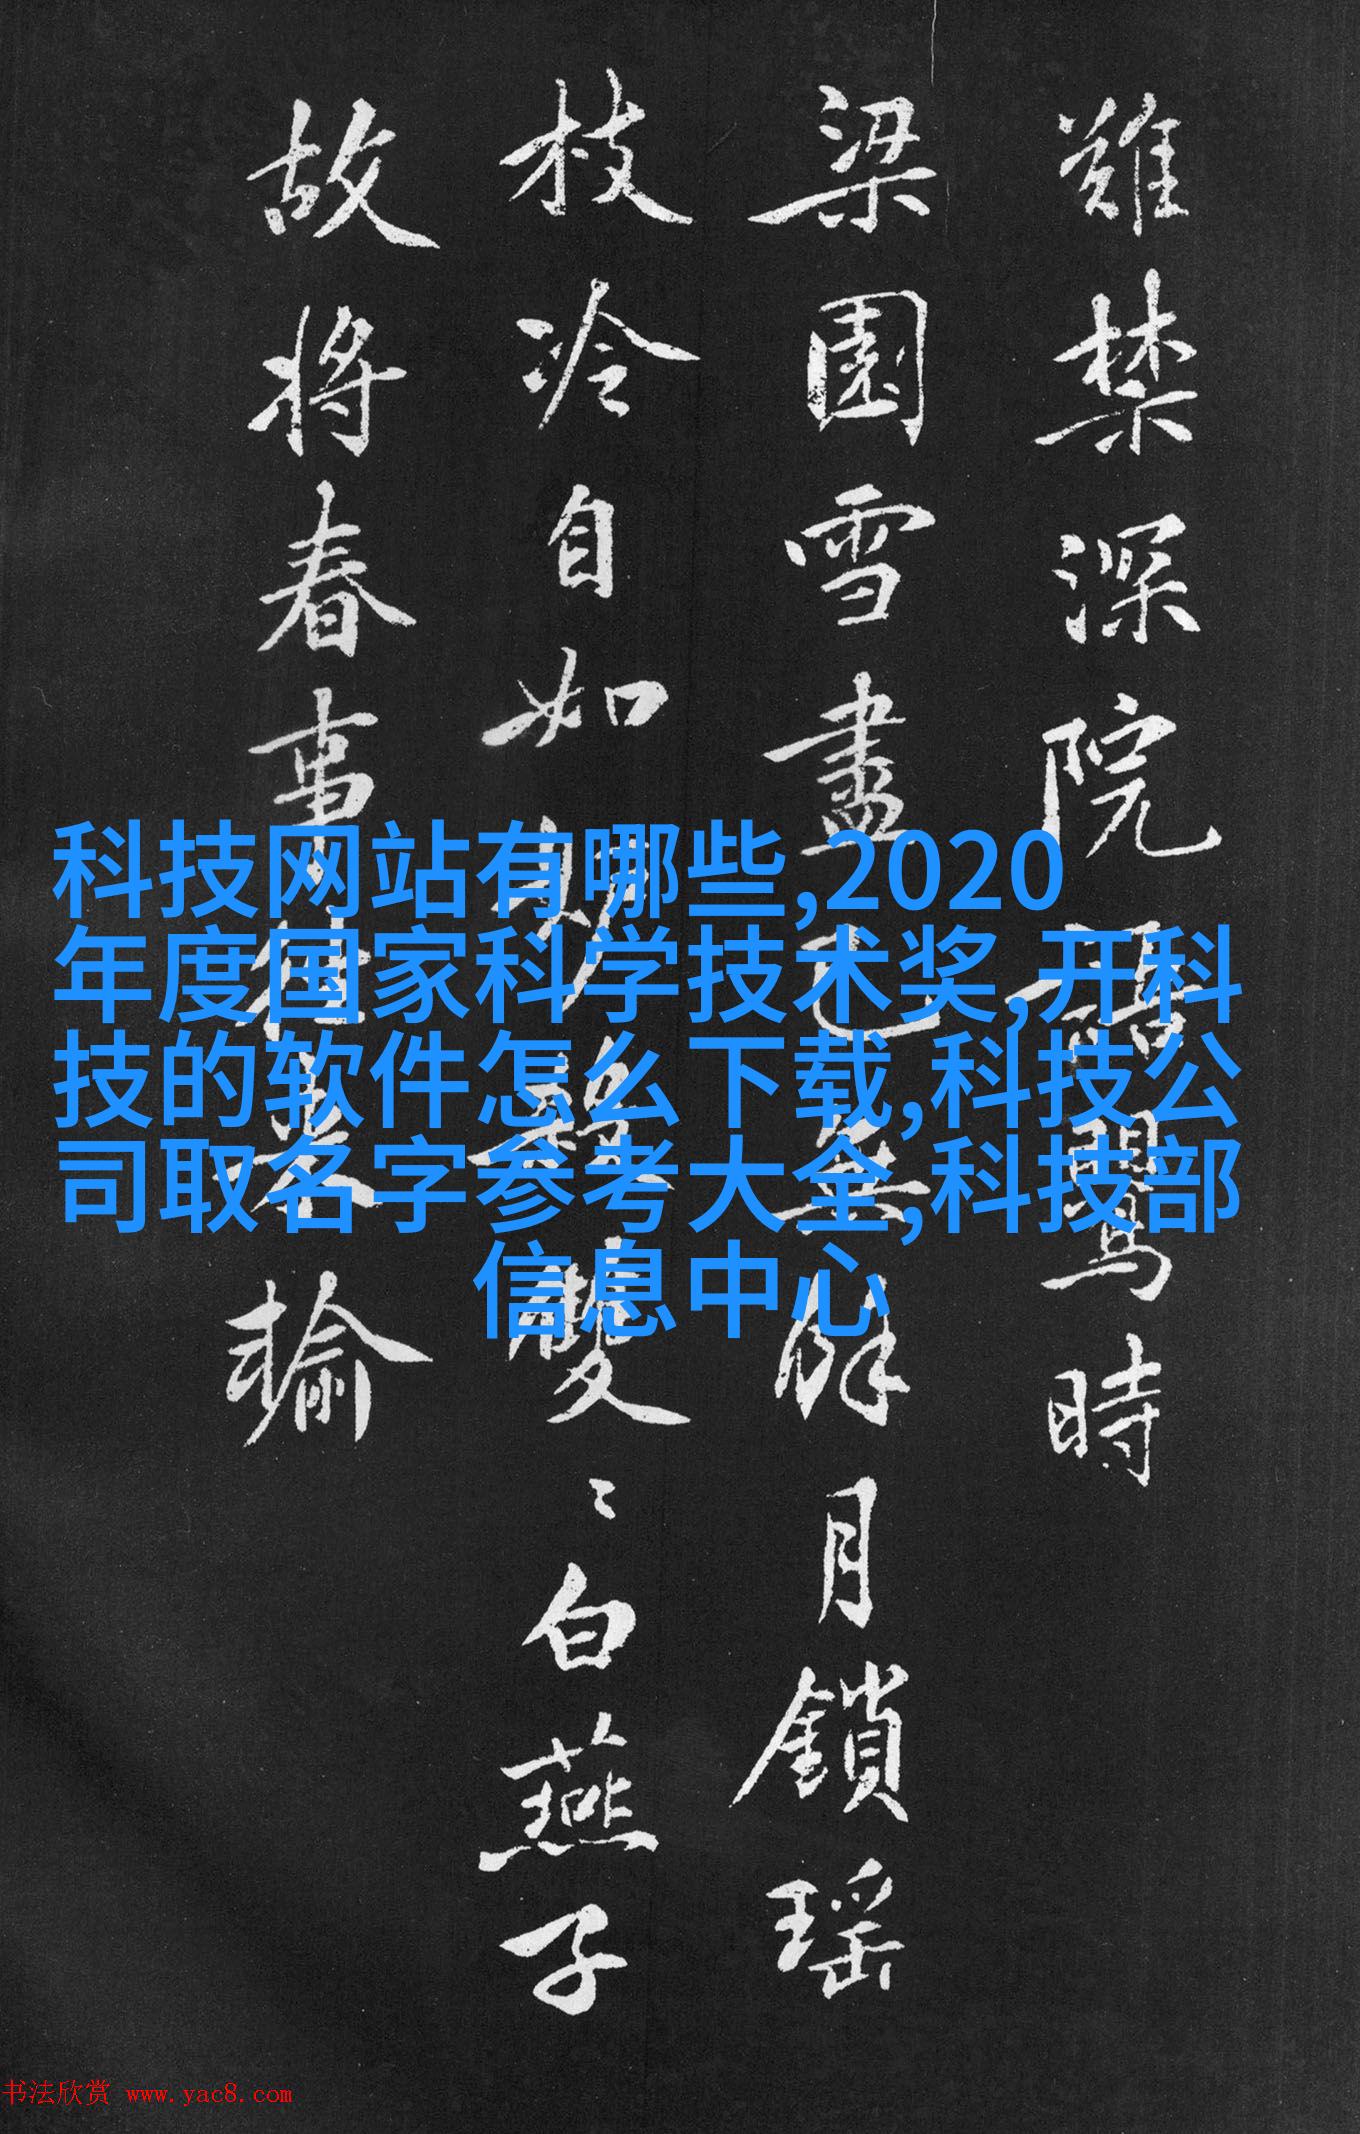 難禁深院語鶯時
梁園雪盡已無餘月鎖瑤
枝冷自如初雙〻白燕子
故將春事輸
科技网站有哪些,2020
年度国家科学技术奖,开科
技的软件怎么下载,科技公
司取名字参考大全,科技部
信息中心
书法欣赏 www.yac8.com